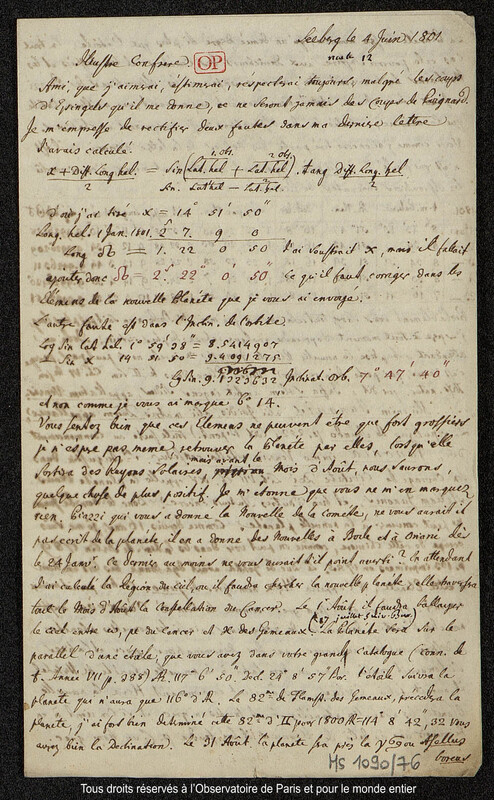 Seeberg le 4 Juin 1801
Illustre Confrere OP
Ami, que j'aimerai, estimerai, respecterai toujours, malgré les coups
d'Epingles qu'il me donne, ce ne seront jamais des Coups de Poignard.
Je m'empresse de rectifier deux fautes dans ma derniere lettre
J'avais calculé.
1 obs. 2 obs.
x + Diff. Long. hel = Sin (Lat. hel + Lat. hel) . tang Diff. Long. hel
2 Sin. Lat hel – Lat. hel 2
d'où j'ai tiré x = 14° 51' 50"
Long. hel. 1 Jan. 1801. 2s 7. 9 0
Long ☊ = 1. 22 0 50 J'ai soustrait x, mais il fallait
ajouter donc ☊ = 2s 22° 0' 50" ce qu'il faut corriger dans les
Elemens de la nouvelle Planète que je vous ai envoyé.
L'autre faute est dans l'Inclin. de l'orbite.
Log Sin lat hel. 1° 59' 38" = 8.5414907
– Sin x 14 51 50 = 9.4091275
Lg Sin. 9.1323632 Inclinat. Orb. 7° 47' 40"
et non comme je vous ai marqué 6° 14'
Vous sentez bien que ces Elemens ne peuvent être que fort grossiers
je n'espere pas meme, retrouver la Planète par elles, lorsqu'elle
Sortira des Rayons Solaires, mais avant le Mois d'Août, nous Saurons,
quelque chose de plus positif. Je m'étonne que vous ne m'en marquez
rien. Piazzi qui vous a donné la Nouvelle de la Comete, ne vous aurait il
pas ecrit de la planète, il en a donné des Nouvelles à Bode et à Oriani dès
le 24 Janv. Ce dernier au moins ne vous aurait il point averti? En attendant
J'ai calculé la Région du Ciel, ou il faudra chercher la nouvelle planète, elle traversera
tout le Mois d'Août la Constellation du Cancer. Le 1 Août il faudra ballayer
le ciel entre
du cancer et
des Gemeaux. La Planète sera sur le
parallele d'une étoile, que vous avez dans votre grand Catalogue (Conn. de
t. Année VII p. 388) AR. 117° 6' 50" Decl. 24° 8' 57" Bor. l'étoile Suivra la
planète qui n'aura que 116° d'AR. Le 82me de Flamst. des Gemeaux, précédera la
planète, j'ai fort bien determiné cette 82me d'♊ pour 1800 AR = 114° 8' 42, 32 vous
aurez bien la Declinaison. Le 31 Août la planète sera près la γ ♋ ou Asellus
boreus
MS 1090/76
Tous droits réservés à l'Observatoire de Paris et pour le monde entier